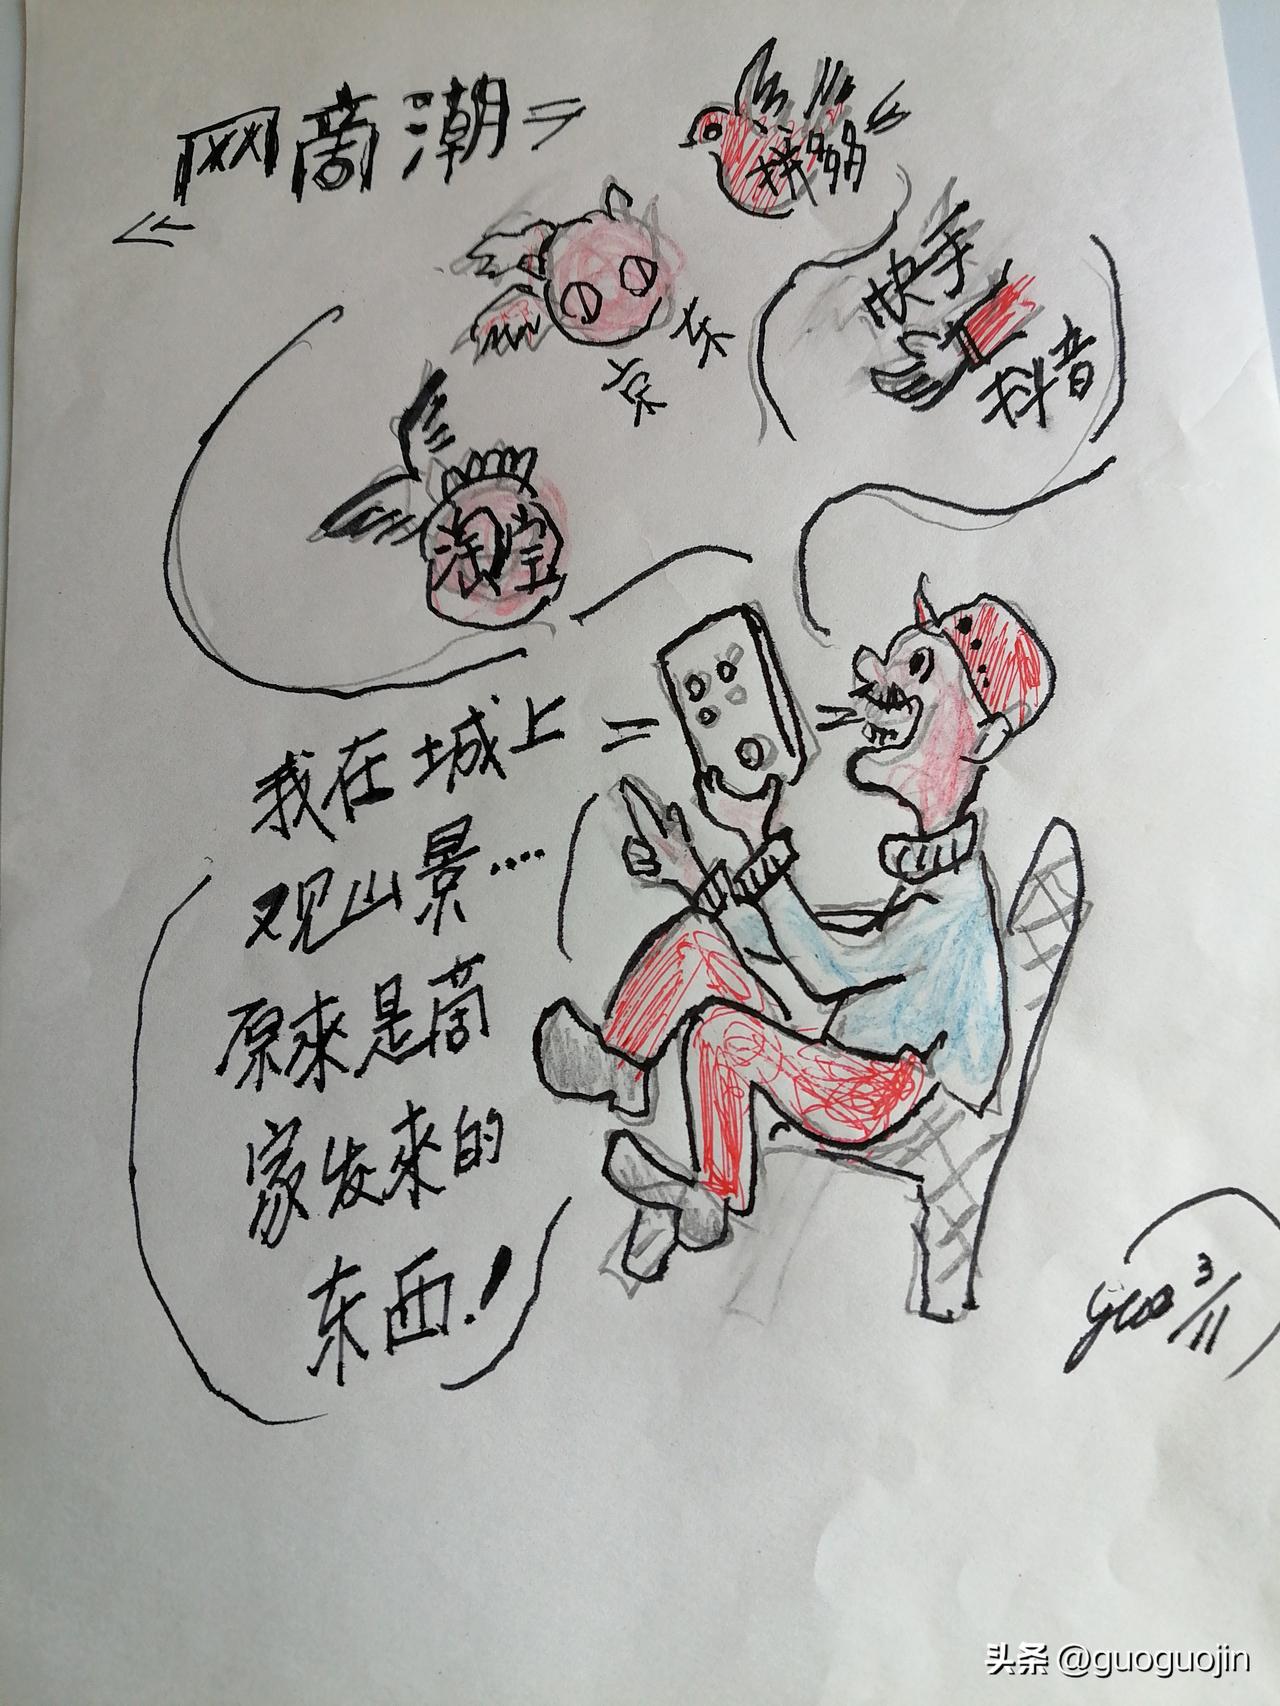 《网商潮》
拼多多
京东
快手
抖音
淘宝
我在城上
观山景....
原來是商
家发來的
东西!
guo 3/11
头条 @guoguojin